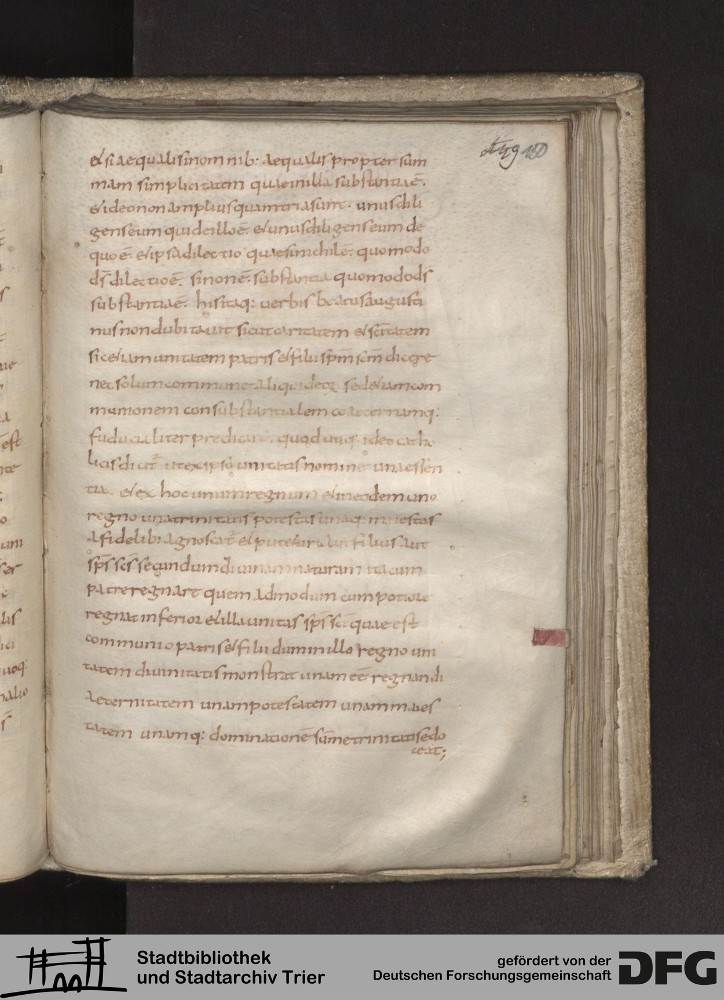 160
et si aequalis in omnib: aequalis propter sum
mam simplicitatem quae in illa substantia ē.
et ideo non amplius quam tria sunt. unus dili
gens eum qui de illo ē. et unus diligens eum de
quo ē. et ipsa dilectio quae si nihil ē. quomodo
ds̄ dilectio ē. si non ē. substantia quomodo ds̄
substantia ē. his itaq: uerbis beatus augusti
nus non dubitauit sicut caritatem et sc̄itatem
sic etiam unitatem patris et filii sp̄m sc̄m dicere
nec solum commune aliquid sed etiam com
munionem consubstantialem coaeternamq:
fiducialiter predicare quod unus ideo catho
licis dicit ut ex ipso unitatis nomine una essen
tia. et ex hoc unum regnum et in eodem uno
regno una trinitatis potestas unaq: maiestas
a fidelib: agnoscat et pater aut filius aut
sp̄s sc̄s secundum diuinam naturam ita cum
patre regnare quem admodum cum potiore
regnat inferior et illa unitas sp̄s sc̄i quae est
communio patris et filii dum in illo regno uni
tatem diuinitatis monstrat unam eē regnandi
aeternitatem unam potestatem unam maies
tatem unamq: dominationē sum̄e trinitatis edo
ceat;
Stadtbibliothek
und Stadtarchiv Trier
gefördert von der
Deutschen Forschungsgemeinschaft
DFG